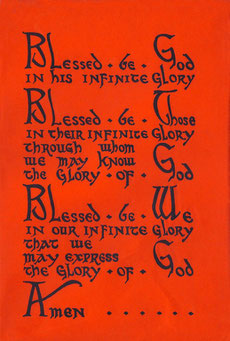 Blessed · be · God
in his infinite Glory
Blessed · be · Those
in their infinite Glory
through whom
we may know
the Glory · of · God
Blessed · be · We
in our infinite Glory
that we
may express
the Glory · of · God
Amen · · · · · ·